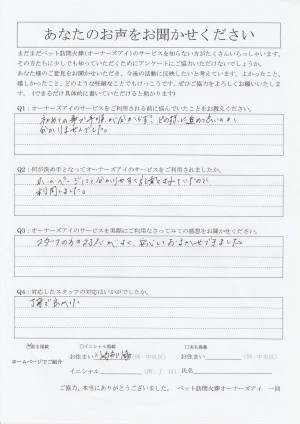 あなたのお声をお聞かせください
まだまだペット訪問火葬(オーナーズアイ)のサービスを知らない方がたくさんいらっしゃいます。
その方たちに少しでも知っていただくためにアンケートにご協力いただけないでしょうか。
あなた様のご意見をお聞かせいただき、今後の活動に反映したいと考えています。よかったこと、
嬉しかったこと、どのような些細なことでもけっこうです。ぜひご協力をよろしくお願いいたしま
す。(できるだけ具体的に書いていただけると助かります)
Q1:オーナーズアイのサービスをご利用される前に悩んでいたことをお教えください。
初めての事で手順が分からず、どの様に進めて良いのか
分かりませんでした。
Q2:何が決め手となってオーナーズアイのサービスをご利用されましたか。
ホームページにて分かりやすく記載されていたので
利用しました。
Q3:オーナーズアイのサービスを実際にご利用なさってみての感想をお聞かせください。
スタッフの方の対応がよく、安心しておまかせできました。
Q4:対応したスタッフの対応はいかがでしたか。
丁寧で良かった
匿名掲載
イニシャル掲載
実名掲載
ホームページでご紹介
お住まい
(例:中央区)
お住まい
(例:中央区)
イニシャル
(例:J.H)
氏名
ご協力、本当にありがとうございました。 ペット訪問火葬オーナーズアイ 一同